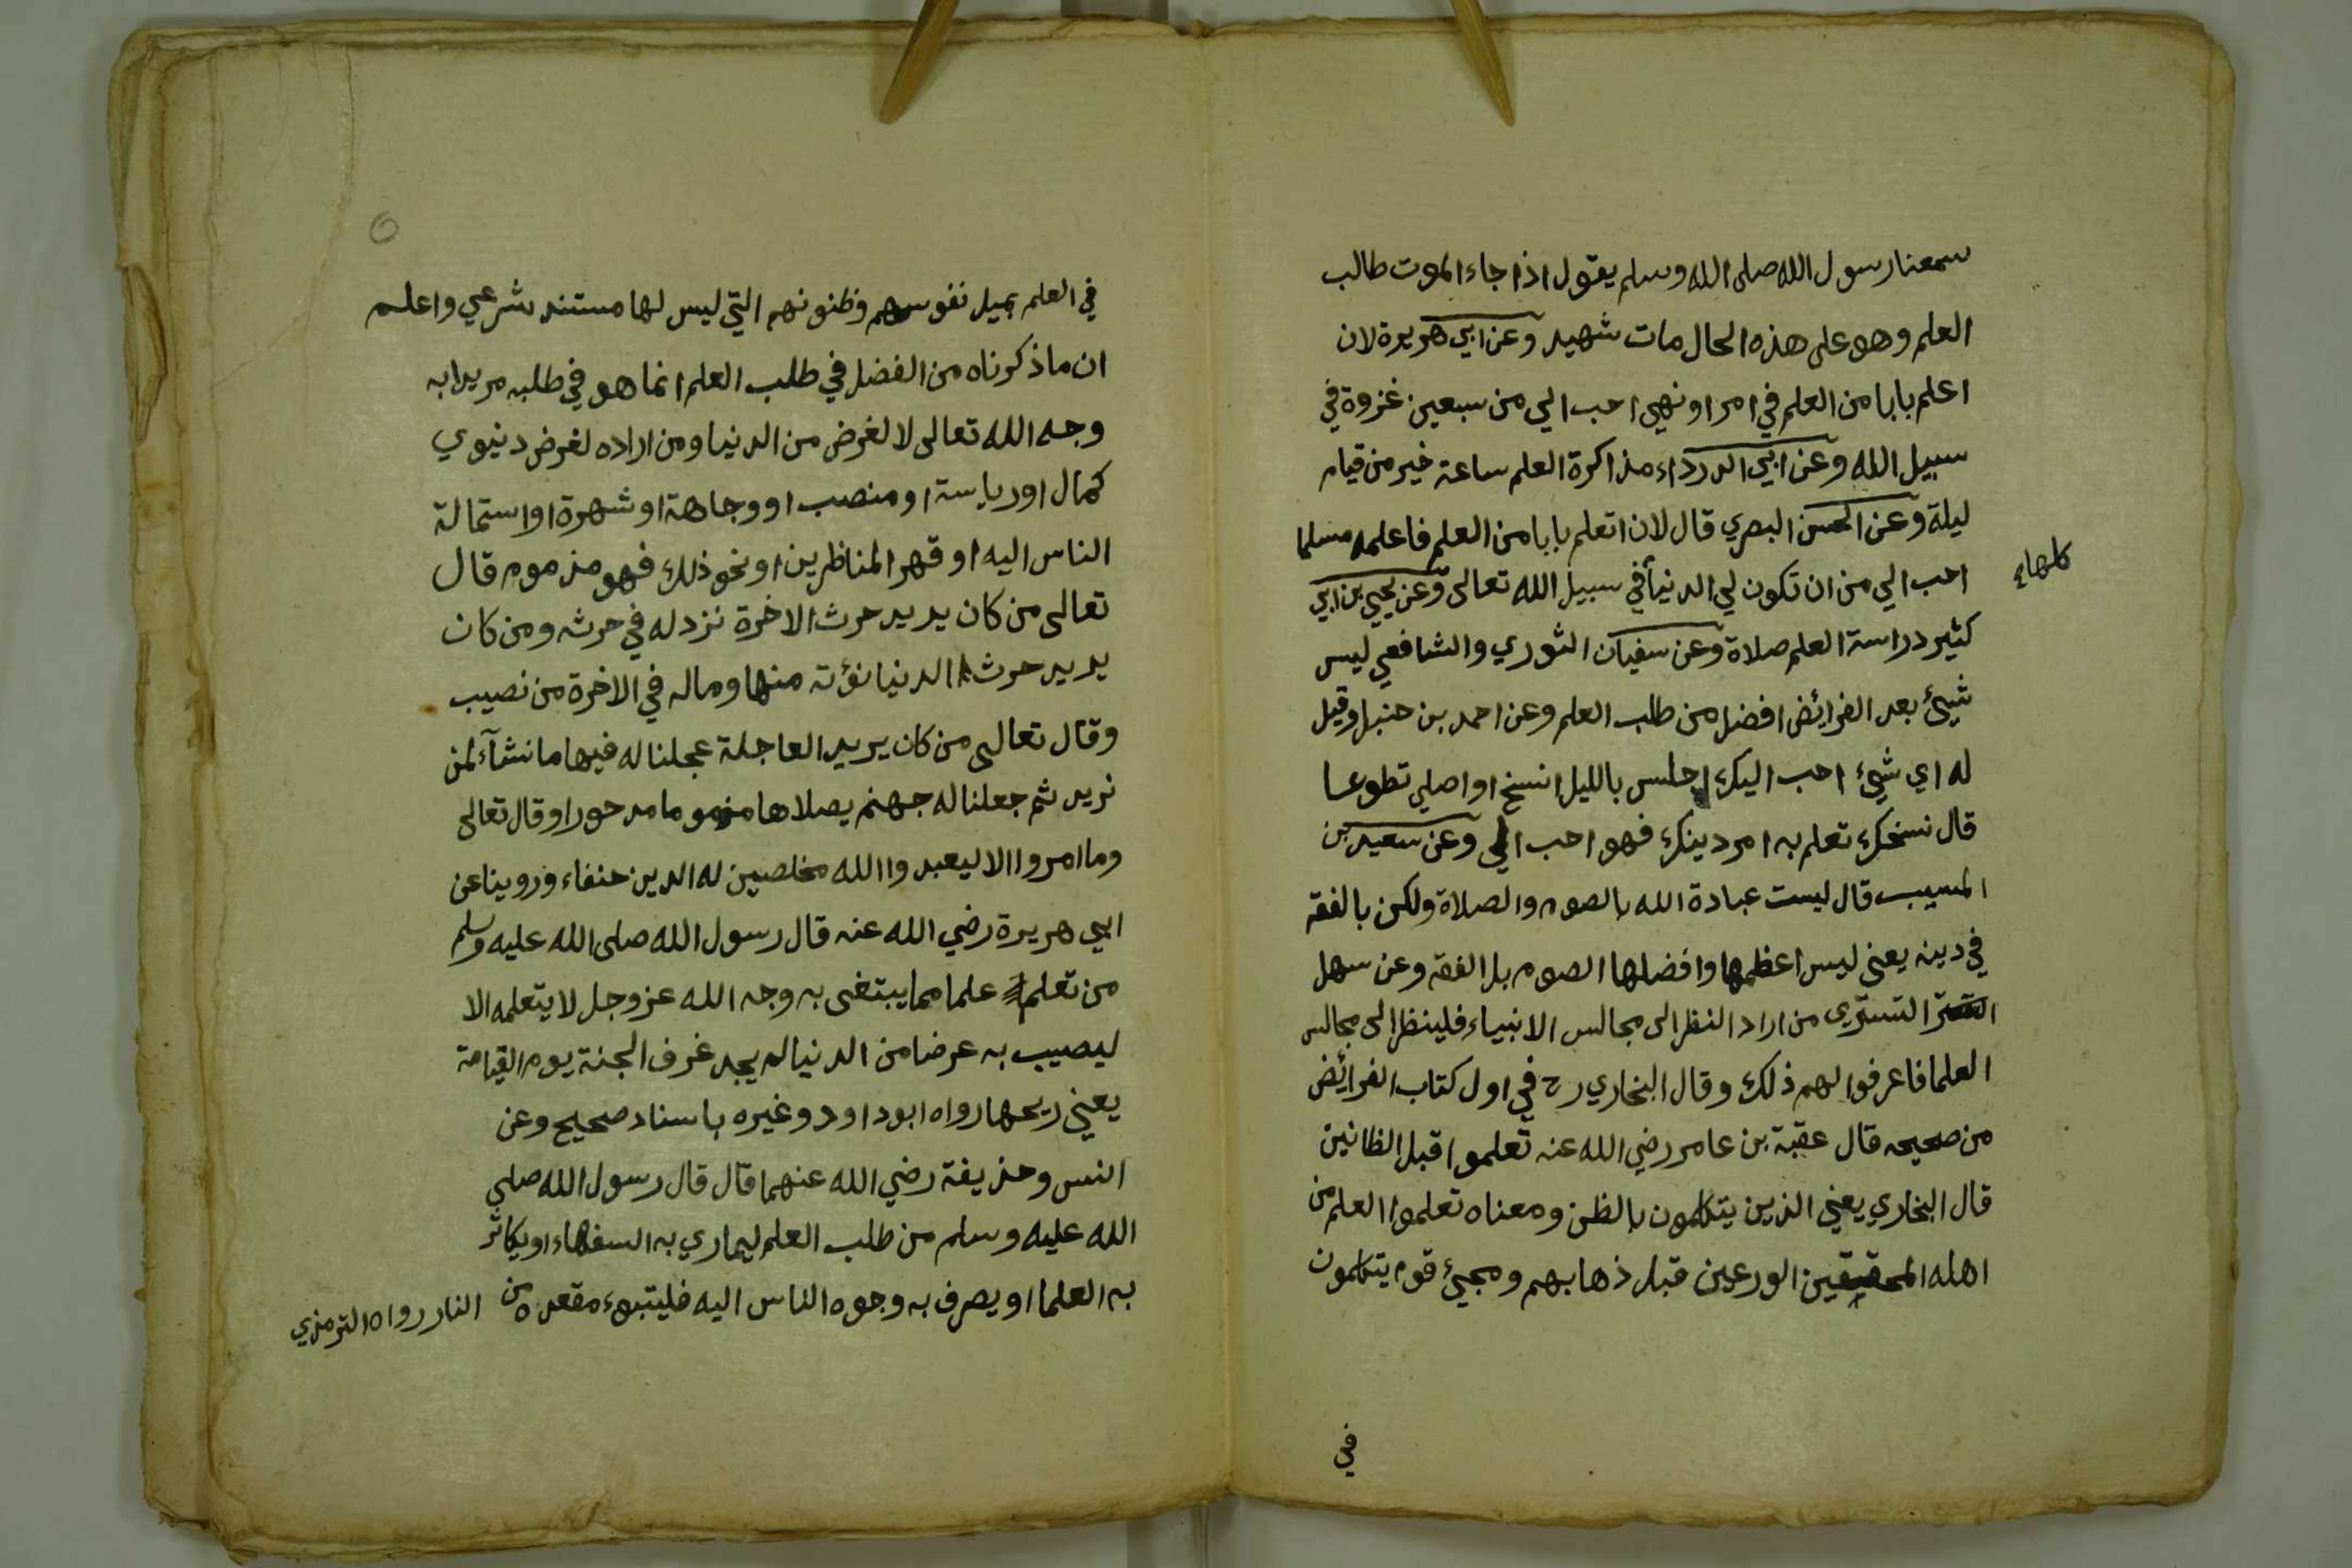 سمعنا رسول الله صلى الله وسلم يقول اذا جاء الموت طالب
العلم وهو على هذه الحال مات شهيد وعن ابي هريرة لان
اعلم بابا من العلم في امر او نهي احب الي من سبعين غزوة في
سبيل الله وعن ابي الدرداء مذاكرة العلم ساعة خير من قيام
ليلة وعن الحسن البصري قال لان اتعلم بابا من العلم فاعلمه مسلما
احب الي من ان تكون لي الدنيا في سبيل الله تعالى وعن يحيي بن ابي
كلها
كثير دراسة العلم صلاة وعن سفيان الثوري والشافعي ليس
شيئ بعد الفرائض افضل من طلب العلم وعن احمد بن حنبل وقيل
له اي شيئ احب اليك اجلس بالليل انسخ او اصلي تطوعا
قال نسخك تعلم به امر دينك فهو احب الي وعن سعيد بن
المسيب قال ليست عبادة الله بالصوم والصلاة ولكن بالفقه
في دينه يعني ليس اعظمها وافضلها الصوم بل الفقه وعن سهل
التستري من اراد النظر الى مجالس الانبياء فلينظر الى مجالس
العلما فاعرفوا لهم ذلك وقال البخاري رح في اول كتاب الفرائض
من صحيحه قال عقبة بن عامر رضي الله عنه تعلموا قبل الظانين
قال البخاري يعني الذين يتكلمون بالظن ومعناه تعلموا العلم من
اهله المحققين الورعين قبل ذهابهم ومجيئ قوم يتكلمون
في
في العلم بميل نفوسهم وظنونهم التي ليس لها مستند شرعي واعلم
ان ما ذكرناه من الفضل في طلب العلم انما هو في طلبه مريدا به
وجه الله تعالى لا لغرض من الدنيا ومن اراده لغرض دنيوي
كمال او رياسة او منصب او وجاهة او شهرة او استمالة
الناس اليه او قهر المناظرين او نحو ذلك فهو مذموم قال
تعالى من كان يريد حرث الاخرة نزد له في حرثه ومن كان
يريد حرث الدنيا نؤته منها وماله في الاخرة من نصيب
وقال تعالى من كان يريد العاجلة عجلنا له فيها ما نشآء لمن
نريد ثم جعلنا له جهنم يصلاها مذموما مدحورا وقال تعالى
وما امروا الا ليعبدوا الله مخلصين له الدين حنفاء وروينا عن
ابي هريرة رضي الله عنه قال رسول الله صلى الله عليه وسلم
من تعلم علما مما يبتغى به وجه الله عز وجل لا يتعلمه الا
ليصيب به عرضا من الدنيا لم يجد غرف الجنة يوم القيامة
يعني ريحها رواه ابو داود وغيره باسناد صحيح وعن
انس وحذيفة رضي الله عنهما قال قال رسول الله صلي
الله عليه وسلم من طلب العلم ليماري به السفهاء او يكاثر
به العلما او يصرف به وجوه الناس اليه فليتبوء مقعده من النار رواه الترمذي